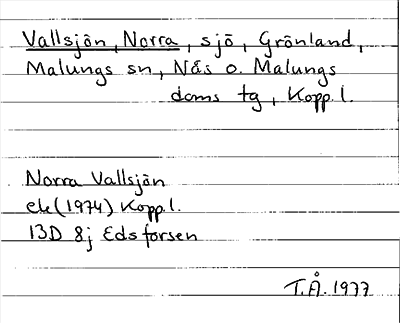 Vallsjön, Norra, sjö, Grönland,
Malungs sn, Nås o. Malungs
doms tg, Kopp. l.
Norra Vallsjön
ek (1974) Kopp. l.
13D 8j Edsforsen
T.Å. 1977